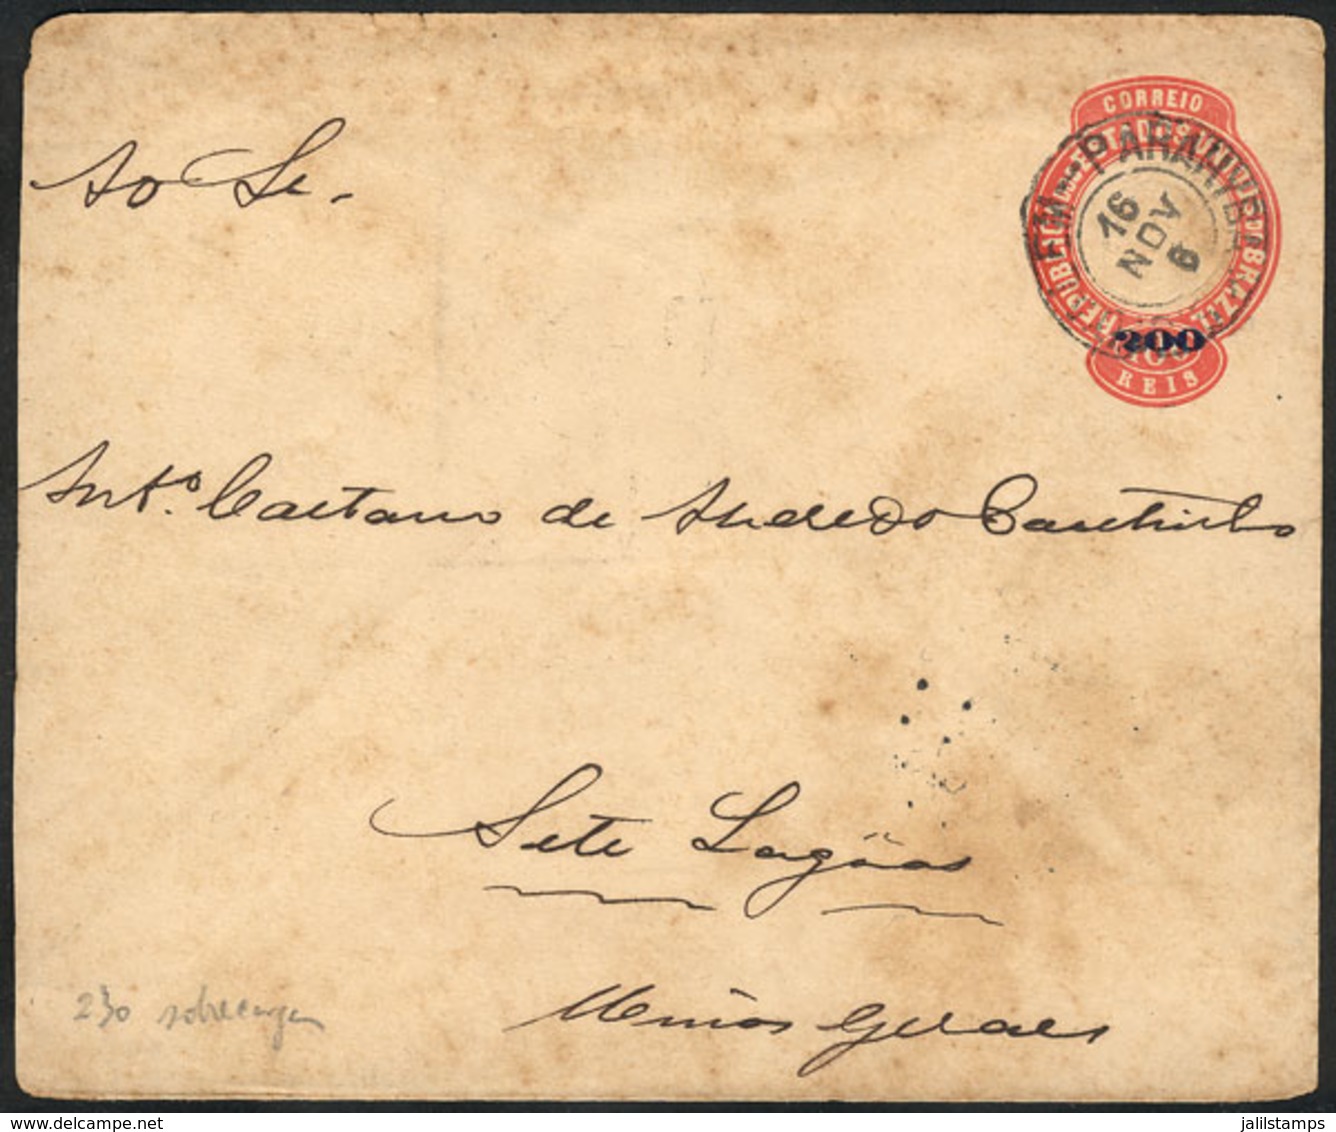 CORREIO
REPUBLICA DOS ESTADOS UNIDOS DO BRAZIL
E.M-PARANVBA
16
NOV
6
200
REIS
Ao Sr.
Antº. Caetano de Azeredo Coutinho
Sete Lagôas
Minas Geraes
230 sobrecarga
jalilstamps
www.delcampe.net